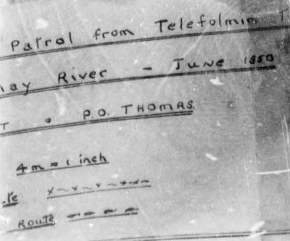 Patrol from Telefolmin T
may River - JUNE 1950
T . P.O. THOMAS.
4m = 1 inch
te x~x~x~x~x
ROUTE